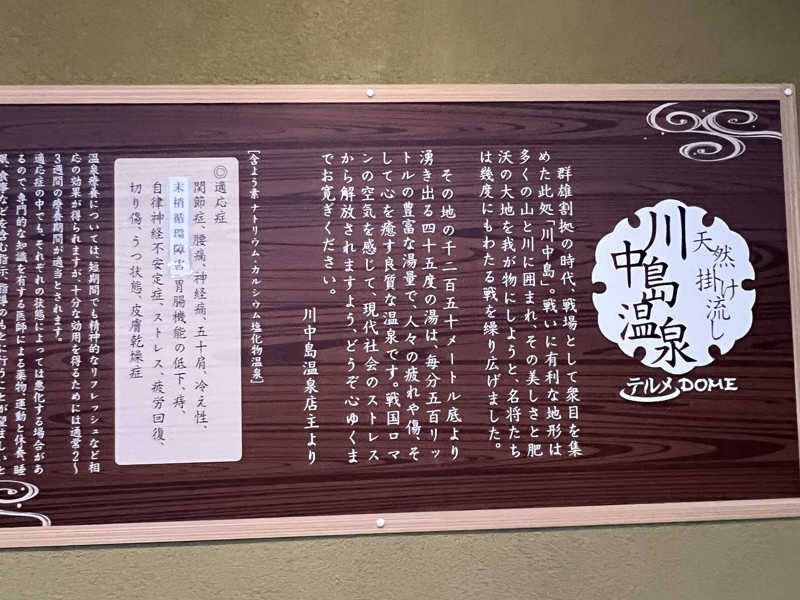 天然掛け流し
川中島温泉
テルメDOME
群雄割拠の時代、戦場として衆目を集
めた此処「川中島」。戦いに有利な地形は
多くの山と川に囲まれ、その美しさと肥
沃の大地を我が物にしようと、名将たち
は幾度にもわたる戦を繰り広げました。
その地の千二百五十メートル底より
湧き出る四十五度の湯は、毎分五百リッ
トルの豊富な湯量で、人々の疲れや傷、そ
して心を癒す良質な温泉です。戦国ロマ
ンの空気を感じて、現代社会のストレス
から解放されますよう、どうぞ心ゆくま
でお寛ぎください。
川中島温泉店主より
[含よう素-ナトリウム・カルシウム塩化物温泉]
◎適応症
関節症、腰痛、神経痛、五十肩、冷え性、
末梢循環障害、胃腸機能の低下、痔、
自律神経不安定症、ストレス、疲労回復、
切り傷、うつ状態、皮膚乾燥症
温泉療養については、短期間でも精神的なリフレッシュなど相
応の効果が得られますが、十分な効用を得るためには通常2〜
3週間の療養期間が適当とされます。
適応症の中でも、それぞれの状態によっては悪化する場合があ
るので、専門的な知識を有する医師による薬物、運動と休養、睡
眠、食事などを含む指示、指導のもとに行うことが望ましい